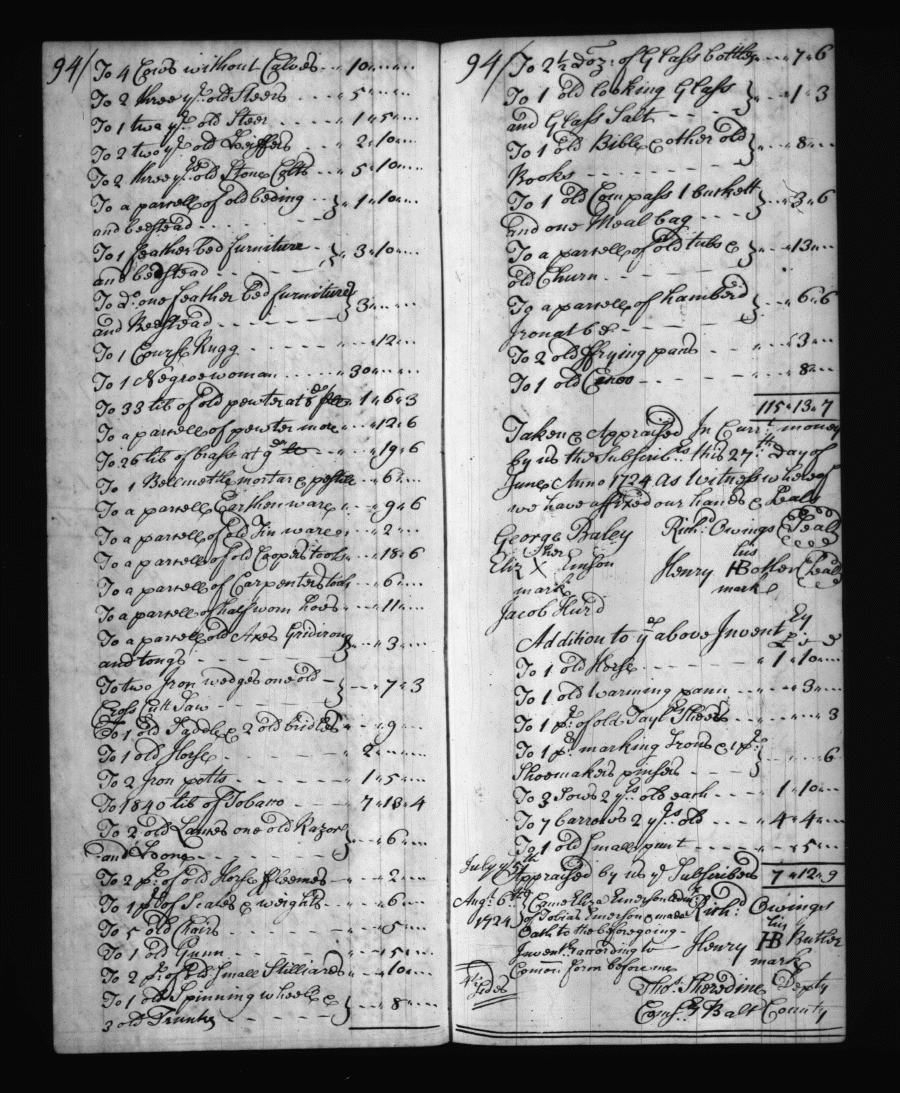 94/ To 4 Cows without Calves - - - " 10 " - " -
To 2 three yr. old Steers - - - - " 5 " - " -
To 1 two yr. old Steer - - - - " 1 " 5 " -
To 2 two yr. old Heiffers - - - - 2 " 10 " -
To 2 three yrs. old Stone Colts - - 5 " 10 " -
To a parsell of old beding - - } " 1 " 10 " -
and bedstead - - -
To 1 feather bed furniture - } " 3 " 10 " -
and bedstead - - - - -
To do. one feather bed furniture } 3 " - " -
and Bedstead - - - - -
To 1 Course Rugg - - - - " - " 12 " -
To 1 Negroe woman - - - - 30 " - " -
To 33 lib of old pewter at " 1 " 6 " 3
To a parsell of pewter more " - " 12 " 6
To 26 lib of brass at 9d " - " 19 " 6
To 1 Bellmettle mortar & pestle " - " 6 " -
To a parsell Earthen ware - " - " 9 " 6
To a parsell of old Tin ware " - " 2 " -
To a parsell of old Coopers tools " - " 18 " 6
To a parsell of Carpenters tools " - " 6 " -
To a parsell of half worn hoes " - " 11 " -
To a parsell old Axes Gridirons } " - " 3 " -
and tongs - - - - - -
To two Iron wedges one old - } " - " 7 " 3
Cross Cutt Saw - - - - -
To 1 old Saddle & 2 old bridles " - " 9 " -
To 1 old Horse - - - - - " 2 " - " -
To 2 Iron potts - - - - - " 1 " 5 " -
To 1840 lib of Tobaco - - - 7 " 13 " 4
To 2 old Lances one old Razor } " - " 6 " -
and - - - - -
To 2 pr. of old Horse ffleemes - " - " 2 " -
To 1 pr. of Scales & weights - - " - " 6 " -
To 5 old Chairs - - - - - " - " 5 " -
To 1 old Gunn - - - - - " - " 15 " -
To 2 pr. of old Small Stilliards " - " 10 " -
To 1 old Spinning wheele & } " - " 8 " -
3 old Trunks - - - - - -
94/ To 2 1/2 doz: of Glass bottles " - " 7 " 6
To 1 old looking Glass } " - " 1 " 3
and Glass Salt - - - -
To 1 old Bible & other old } " - " 8 " -
Books - - - - - - -
To 1 old Compass 1 buckett } " - " 3 " 6
and one Meal bag - - - -
To a parsell of old tubs & } " - " 13 " -
old Churn - - - - - -
To a parsell of hamberd } " - " 6 " 6
Iron at 6d - - - - - -
To 2 old ffrying pans - - - " - " 3 " -
To 1 old Canoo - - - - - - " - " 8 " -
115 " 13 " 7
Taken & Appraised In Currt. money
by us the Subscribrs this 27th. day of
June Anno 1724 As Witness whereof
we have affixed our hands & Seals
George Baley Richd: Owings (Seal)
her his
Eliz X Henry HB Buther (Seal)
mark mark
Jacob Hurd
Addition to ye above Inventry
£ s d
To 1 old Horse - - - - - - " 1 " 10 " -
To 1 old warming pann - - - " - " 3 " -
To 1 pr. of old Taylr Shears - - " - " - " 3
To 1 pr. marking Irons & 1 pr. } " - " - " 6
Shoemakers pinsers - - - -
To 3 Sows 2 yrs. old each - - " 1 " 10 " -
To 7 barrows 2 yrs. old - - " 4 " 4 " -
To 1 old Small punt - - - " - " 5 " -
July ye 5th Appraised by us ye Subscribers 7 " 12 " 9
Augt. 6th 1724 } Came Eliza Emerson Admx Richd: Owings
of Tobias Emerson & made
Oath to the beforegoing his
Inventy according to Henry HB Buther
Comon form before me mark
4 1/2 Sides
Thos. Sheredine Depty
Comsy. Balt County